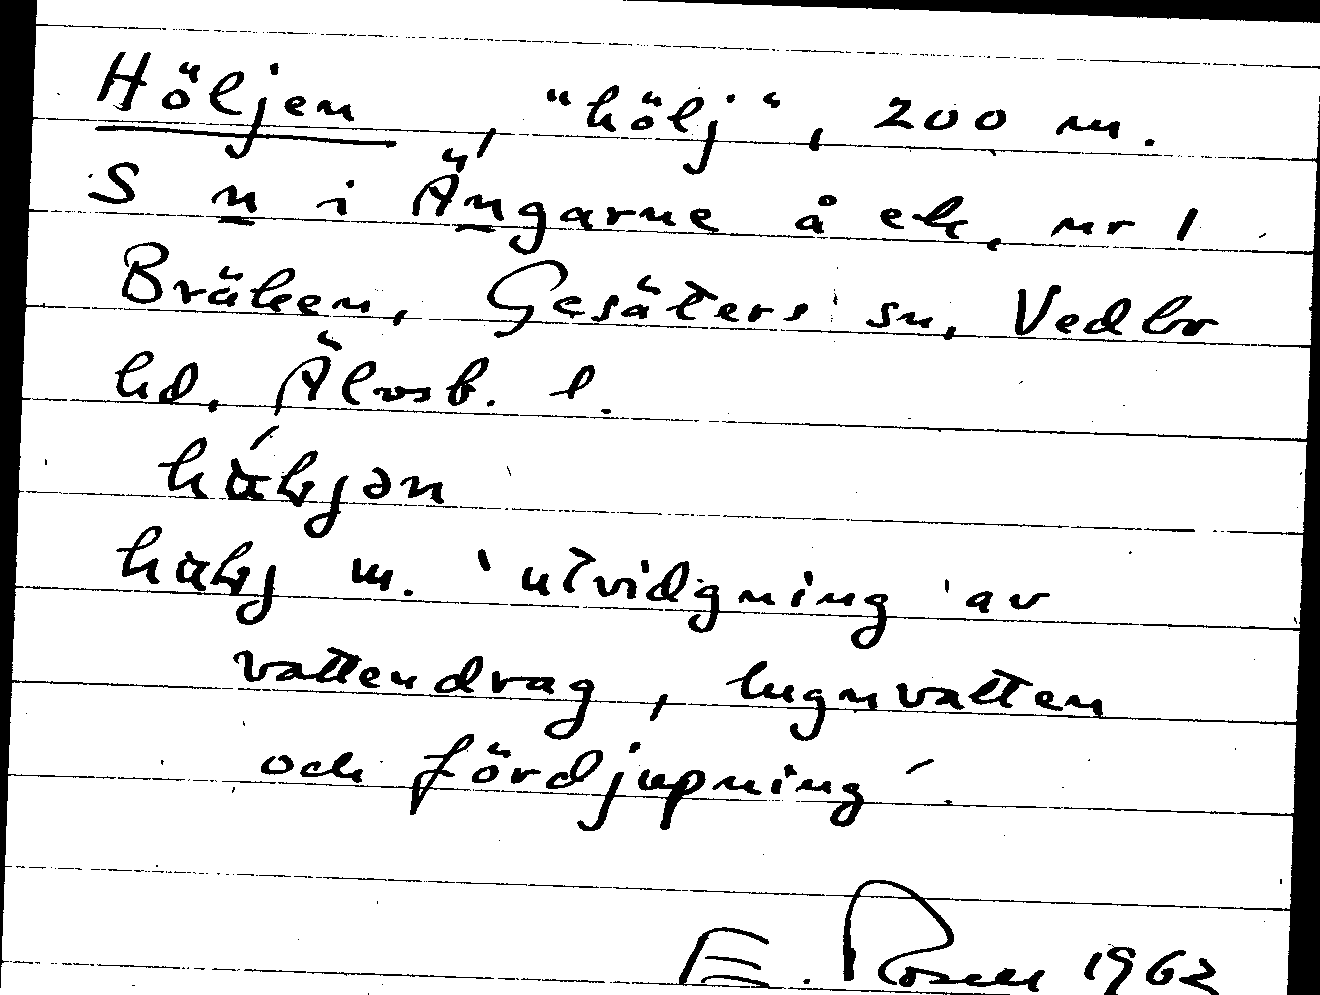 Höljen, "hölj", 200 m.
S n i Ängarne å ek. nr 1
Bräken, Gesäters sn, Vedbo
hd. Älvsb. l.
m. 'utvidgning av
vattendrag, lugnvatten
och fördjupning'.
E. Rosell 1962